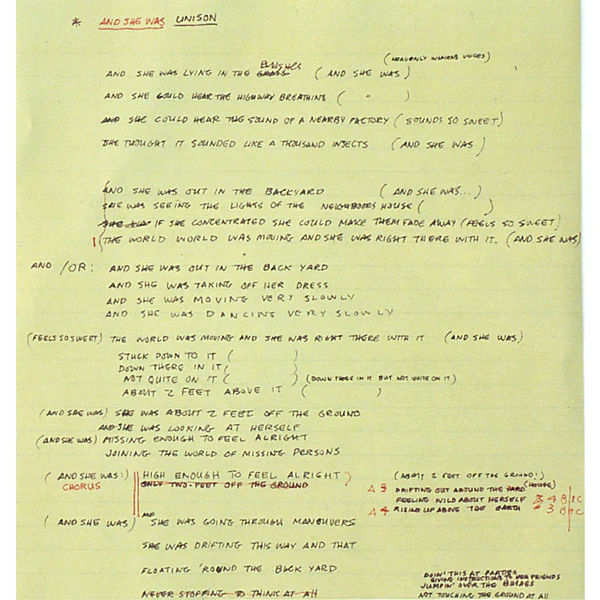 * AND SHE WAS UNISON
(HEAVENLY WOMENS VOICES)
AND SHE WAS LYING IN THE GRASS BUSHES (AND SHE WAS)
AND SHE COULD HEAR THE HIGHWAY BREATHING ( " )
AND SHE COULD HEAR THE SOUND OF A NEARBY FACTORY (SOUNDS SO SWEET)
SHE THOUGHT IT SOUNDED LIKE A THOUSAND INSECTS (AND SHE WAS)
AND SHE WAS OUT IN THE BACKYARD (AND SHE WAS...)
SHE WAS SEEING THE LIGHTS OF THE NEIGHBOORS HOUSE ( )
IF SHE CONCENTRATED SHE COULD MAKE THEM FADE AWAY (FEELS SO SWEET)
THE WORLD WORLD WAS MOVING AND SHE WAS RIGHT THERE WITH IT. (AND SHE WAS)
AND /OR: AND SHE WAS OUT IN THE BACK YARD
AND SHE WAS TAKING OFF HER DRESS
AND SHE WAS MOVING VERY SLOWLY
AND SHE WAS DANCING VERY SLOWLY
(FEELS SO SWEET) THE WORLD WAS MOVING AND SHE WAS RIGHT THERE WITH IT (AND SHE WAS)
STUCK DOWN TO IT ( )
DOWN THERE IN IT ( )
NOT QUITE ON IT ( ) (DOWN THERE IN IT BUT NOT QUITE ON IT)
ABOUT 2 FEET ABOVE IT ( )
(AND SHE WAS) SHE WAS ABOUT 2 FEET OFF THE GROUND
AND SHE WAS LOOKING AT HERSELF
(AND SHE WAS) MISSING ENOUGH TO FEEL ALRIGHT
JOINING THE WORLD OF MISSING PERSONS
(AND SHE WAS!) HIGH ENOUGH TO FEEL ALRIGHT (ABOUT 2 FEET OFF THE GROUND!)
CHORUS ONLY TWO FEET OFF THE GROUND
A 3 DRIFTING OUT AROUND THE YARD (HOUSE)
FEELING WILD ABOUT HERSELF
A 4 RISING UP ABOVE THE EARTH
(AND SHE WAS) AND SHE WAS GOING THROUGH MANEUVERS
SHE WAS DRIFTING THIS WAY AND THAT
FLOATING 'ROUND THE BACK YARD
NEVER STOPPING TO THINK AT ALL
DOIN' THIS AT PARTIES
GIVING INSTRUCTIONS TO HER FRIENDS
JUMPIN' OVER THE BUSHES
NOT TOUCHING THE GROUND AT ALL